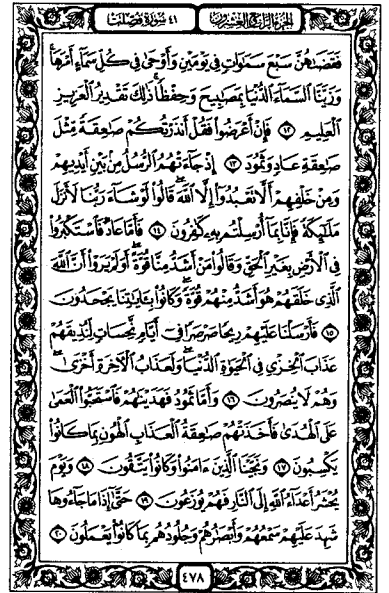 الجزء الرابع والعشرون
٤١ سورة فصلت
فَقَضَىٰهُنَّ سَبْعَ سَمَٰوَاتٍ فِى يَوْمَيْنِ وَأَوْحَىٰ فِى كُلِّ سَمَآءٍ أَمْرَهَا ۚ
وَزَيَّنَّا ٱلسَّمَآءَ ٱلدُّنْيَا بِمَصَٰبِيحَ وَحِفْظًا ۚ ذَٰلِكَ تَقْدِيرُ ٱلْعَزِيزِ
ٱلْعَلِيمِ ١٢ فَإِنْ أَعْرَضُوا۟ فَقُلْ أَنذَرْتُكُمْ صَٰعِقَةً مِّثْلَ
صَٰعِقَةِ عَادٍ وَثَمُودَ ١٣ إِذْ جَآءَتْهُمُ ٱلرُّسُلُ مِنۢ بَيْنِ أَيْدِيهِمْ
وَمِنْ خَلْفِهِمْ أَلَّا تَعْبُدُوٓا۟ إِلَّا ٱللَّهَ ۖ قَالُوا۟ لَوْ شَآءَ رَبُّنَا لَأَنزَلَ
مَلَٰٓئِكَةً فَإِنَّا بِمَآ أُرْسِلْتُم بِهِۦ كَٰفِرُونَ ١٤ فَأَمَّا عَادٌ فَٱسْتَكْبَرُوا۟
فِى ٱلْأَرْضِ بِغَيْرِ ٱلْحَقِّ وَقَالُوا۟ مَنْ أَشَدُّ مِنَّا قُوَّةً ۖ أَوَلَمْ يَرَوْا۟ أَنَّ ٱللَّهَ
ٱلَّذِى خَلَقَهُمْ هُوَ أَشَدُّ مِنْهُمْ قُوَّةً ۖ وَكَانُوا۟ بِـَٔايَٰتِنَا يَجْحَدُونَ
١٥ فَأَرْسَلْنَا عَلَيْهِمْ رِيحًا صَرْصَرًا فِىٓ أَيَّامٍ نَّحِسَاتٍ لِّنُذِيقَهُمْ
عَذَابَ ٱلْخِزْىِ فِى ٱلْحَيَوٰةِ ٱلدُّنْيَا ۖ وَلَعَذَابُ ٱلْءَاخِرَةِ أَخْزَىٰ ۖ
وَهُمْ لَا يُنصَرُونَ ١٦ وَأَمَّا ثَمُودُ فَهَدَيْنَٰهُمْ فَٱسْتَحَبُّوا۟ ٱلْعَمَىٰ
عَلَى ٱلْهُدَىٰ فَأَخَذَتْهُمْ صَٰعِقَةُ ٱلْعَذَابِ ٱلْهُونِ بِمَا كَانُوا۟
يَكْسِبُونَ ١٧ وَنَجَّيْنَا ٱلَّذِينَ ءَامَنُوا۟ وَكَانُوا۟ يَتَّقُونَ ١٨ وَيَوْمَ
يُحْشَرُ أَعْدَآءُ ٱللَّهِ إِلَى ٱلنَّارِ فَهُمْ يُوزَعُونَ ١٩ حَتَّىٰٓ إِذَا مَا جَآءُوهَا
شَهِدَ عَلَيْهِمْ سَمْعُهُمْ وَأَبْصَٰرُهُمْ وَجُلُودُهُم بِمَا كَانُوا۟ يَعْمَلُونَ ٢٠
٤٧٨